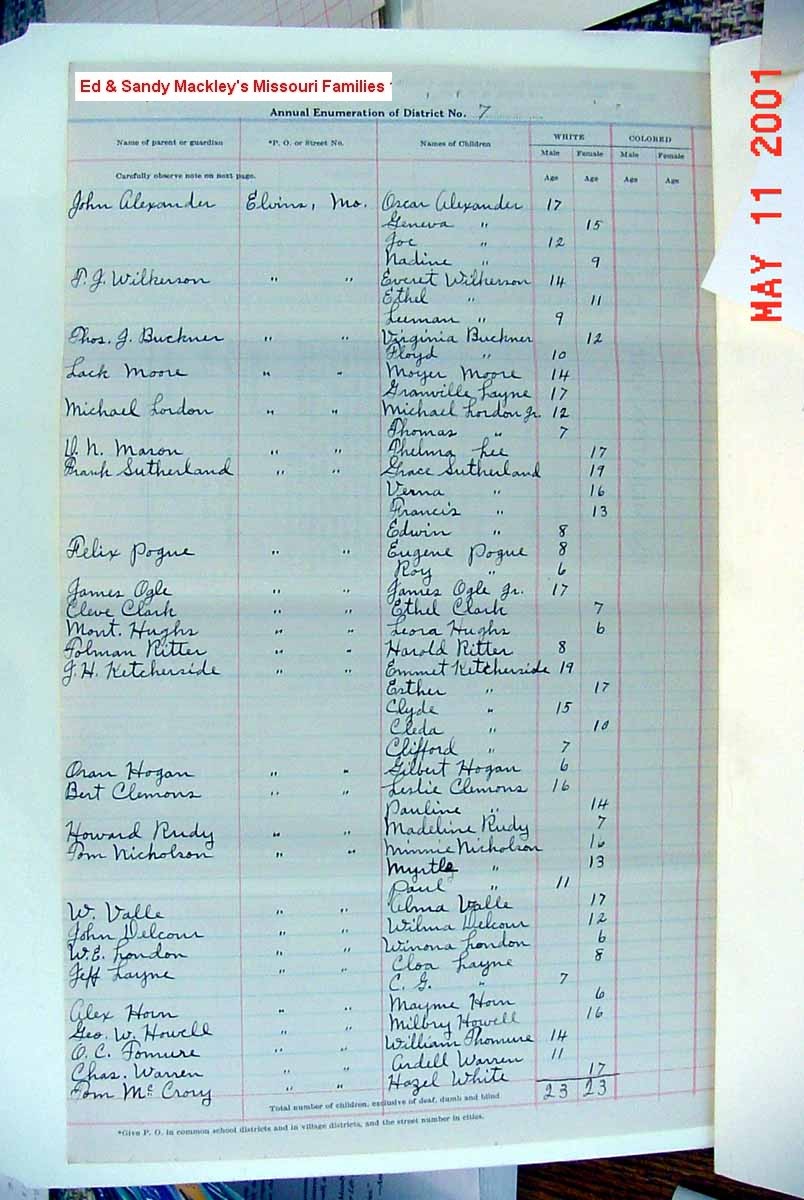 Ed & Sandy Mackley's Missouri Families
Annual Enumeration of District No. 7
Name of parent or guardian *P. O. or Street No. Names of Children WHITE COLORED
Male Female Male Female
Carefully observe note on next page. Age Age Age Age
John Alexander Elvins, Mo. Oscar Alexander 17
Geneva " 15
Joe " 12
Nadine " 9
T. J. Wilkerson " " Everet Wilkerson 14
Ethel " 11
Luman " 9
Thos. J. Buckner " " Virginia Buckner 12
Floyd " 10
Lack Moore " " Moyer Moore 14
Granville Layne 17
Michael Lordon " " Michael Lordon Jr. 12
Thomas " 7
V. N. Mason " " Thelma Lee 17
Frank Sutherland " " Grace Sutherland 19
Verna " 16
Francis " 13
Edwin " 8
Felix Pogue " " Eugene Pogue 8
Roy " 6
James Ogle " " James Ogle Jr. 17
Cleve Clark " " Ethel Clark 7
Mont. Hughs " " Leora Hughs 6
Tolman Ritter " " Harold Ritter 8
J. H. Ketcherside " " Emmet Ketcherside 19
Esther " 17
Clyde " 15
Cleda " 10
Clifford " 7
Oran Hogan " " Gilbert Hogan 6
Bert Clemons " " Leslie Clemons 16
Pauline " 14
Howard Rudy " " Madeline Rudy 7
Tom Nicholson " " Minnie Nicholson 16
Myrtle " 13
Paul " 11
W. Valle " " Alma Valle 17
John Delcour " " Wilma Delcour 12
W. E. London " " Winona London 6
Jeff Layne " " Cloa Layne 8
C. G. " 7
Alex Horn " " Mayme Horn 6
Geo. W. Howell " " Milbry Howell 16
O. C. Tomure " " William Thomure 14
Chas. Warren " " Ardell Warren 11
Tom McCrory " " Hazel White 17
Total number of children, exclusive of deaf, dumb and blind 23 23
*Give P. O. in common school districts and in village districts, and the street number in cities.
MAY 11 2001